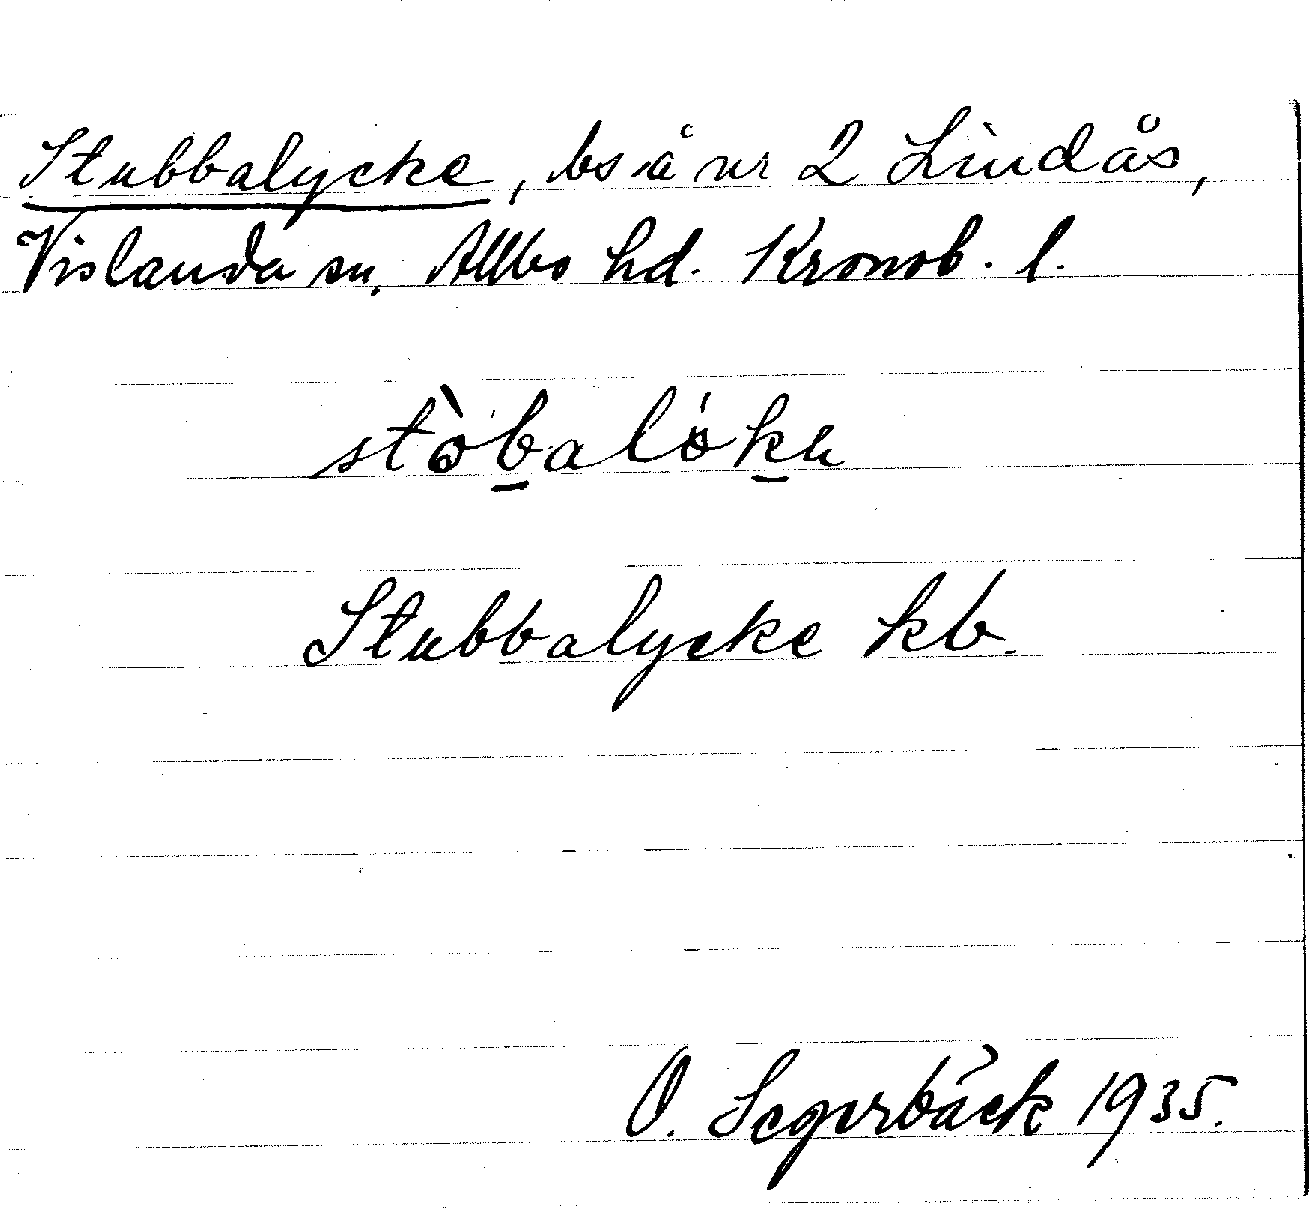 Stubbalycke, bs å nr 2 Lindås,
Vislanda sn, Allbo hd. Kronob. l.
stòbalök
Stubbalycke kb.
O. Segerbäck 1935.